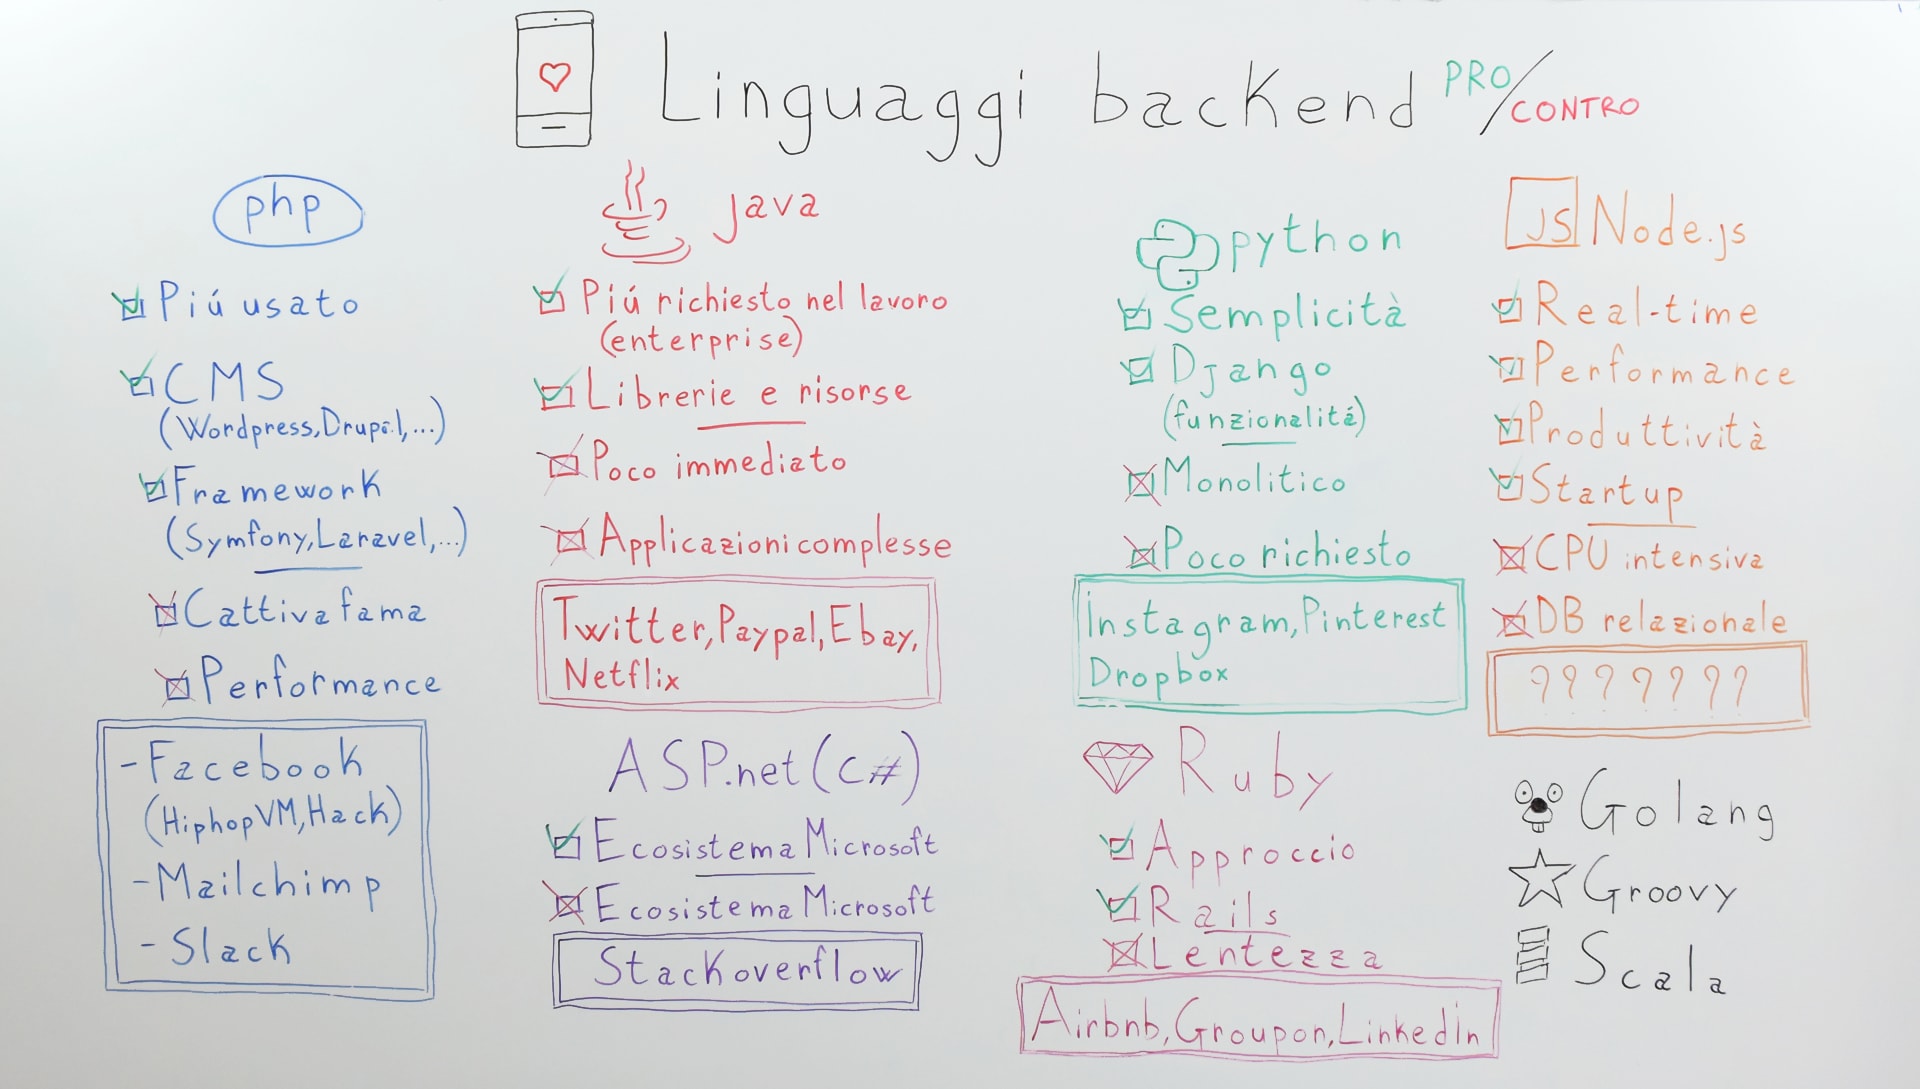 Linguaggi backend PRO/CONTRO
php
Piú usato
CMS
(Wordpress,Drupal,...)
Framework
(Symfony,Laravel,...)
Cattiva fama
Performance
-Facebook
(HiphopVM,Hack)
-Mailchimp
-Slack
java
Piú richiesto nel lavoro
(enterprise)
Librerie e risorse
Poco immediato
Applicazioni complesse
Twitter,Paypal,Ebay,
Netflix
ASP.net(C#)
Ecosistema Microsoft
Ecosistema Microsoft
Stackoverflow
python
Semplicità
Django
(funzionalitá)
Monolitico
Poco richiesto
Instagram,Pinterest
Dropbox
Ruby
Approccio
Rails
Lentezza
Airbnb,Groupon,LinkedIn
JS Node.js
Real-time
Performance
Produttività
Startup
CPU intensiva
DB relazionale
???????
Golang
Groovy
Scala